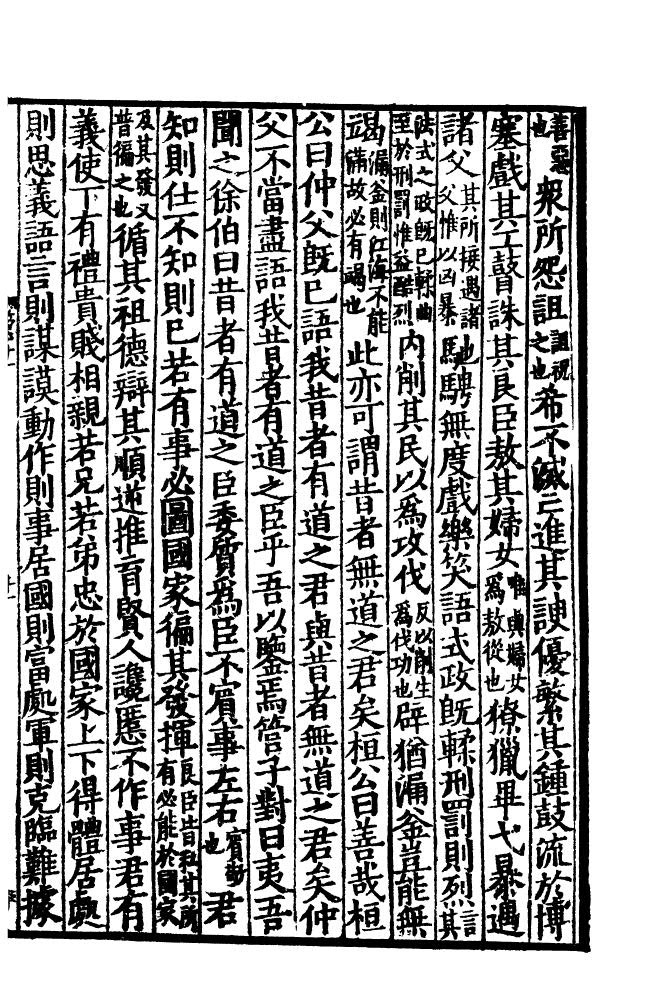 善惡也衆所怨詛詛祝之也希不滅亡進其諛優繁其鍾鼓流於博
塞戲其工瞽誅其良臣敖其婦女唯與婦女爲敖從也獠獵畢弋暴遇
諸父其所接遇諸父惟以凶暴也馳騁無度戲樂笑語式政旣輮刑罰則烈言其
法式之政旣已輮曲至於刑罰惟益酷烈內削其民以爲攻伐反以削生爲伐功也辟猶漏釜豈能無
竭漏釜則江海不能滿故必有竭也此亦可謂昔者無道之君矣桓公曰善哉桓
公曰仲父旣已語我昔者有道之君與昔者無道之君矣仲
父不當盡語我昔者有道之臣乎吾以鑒焉管子對曰夷吾
聞之徐伯曰昔者有道之臣委質爲臣不賓事左右賓敬也君
知則仕不知則已若有事必圖國家徧其發揮良臣皆私其所有必能於國家
及其發又昔徧之也循其祖德辯其順逆推育賢人讒慝不作事君有
義使下有禮貴賤相親若兄若弟忠於國家上下得體居處
則思義語言則謀謨動作則事居國則富處軍則克臨難據